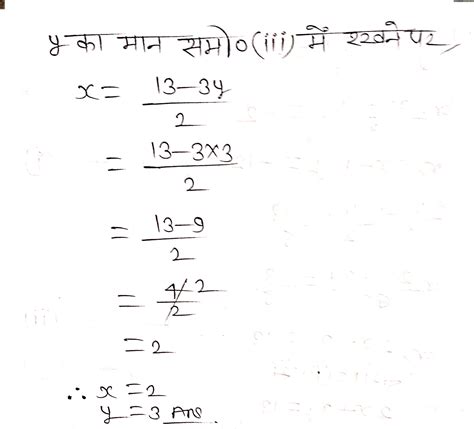 y का मान समी० (iii) में रखने पर,
x = 13-3y/2
= 13-3×3/2
= 13-9/2
= 4/2 2
= 2
∴ x = 2
y = 3 Ans.